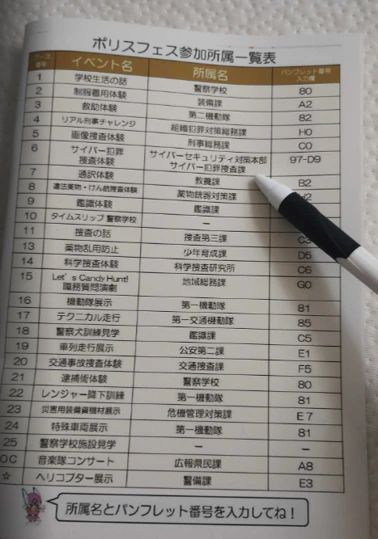 ポリスフェス参加所属一覧表
ブース番号 イベント名 所属名 パンフレット番号入力欄
1 学校生活の話 警察学校 80
2 制服着用体験 装備課 A2
3 救助体験 第二機動隊 82
4 リアル刑事チャレンジ 組織犯罪対策総務課 H0
5 画像捜査体験 刑事総務課 C0
6 サイバー犯罪捜査体験 サイバーセキュリティ対策本部 サイバー犯罪捜査課 97-D9
7 通訳体験 教養課 B2
8 違法薬物・けん銃捜査体験 薬物銃器対策課
9 鑑識体験 鑑識課
10 タイムスリップ 警察学校 ー
11 捜査の話 捜査第三課
13 薬物乱用防止 少年育成課 D5
14 科学捜査体験 科学捜査研究所 C6
15 Let's Candy Hunt! 職務質問演劇 地域総務課 G0
16 機動隊展示 第一機動隊 81
17 テクニカル走行 第一交通機動隊 85
18 警察犬訓練見学 鑑識課 C5
19 車列走行展示 公安第二課 E1
20 交通事故捜査体験 交通捜査課 F5
21 逮捕術体験 警察学校 80
22 レンジャー降下訓練 第一機動隊 81
23 災害用装備資機材展示 危機管理対策課 E7
24 特殊車両展示 第一機動隊 81
25 警察学校施設見学 ー ー
OC 音楽隊コンサート 広報県民課 A8
☆ ヘリコプター展示 警備課 E3
所属名とパンフレット番号を入力してね!